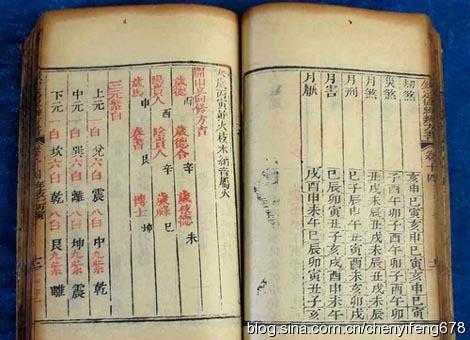 劫煞 亥申巳寅亥申巳寅亥申巳寅
災煞 子酉午卯子酉午卯子酉午卯
月煞 丑戌未辰丑戌未辰丑戌未辰
月刑 巳子辰申午丑寅酉未亥卯戌
月害 巳辰卯寅丑子亥戌酉申未午
月厭 戌酉申未午巳辰卯寅丑子亥
太歲丙寅幹火枝木納音屬火
開山立向修方吉
歲德 歲德合 辛 歲枝德 未
陽貴人 酉 陰貴人 歲祿 巳
歲馬 申 奏書 艮 博士 坤
三元紫白
上元 一白 兌 六白 震 八白 中 九紫 乾
中元 一白 巽 六白 離 八白 坤 九紫 震
下元 一白 坎 六白 乾 八白 艮 九紫 離
blog.sina.com.cn/chenyifeng678